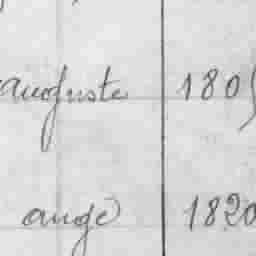 auguste 1805
ange 1820